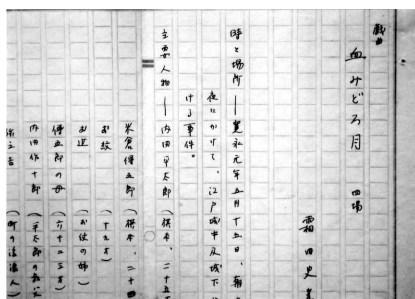 戯曲
血みどろ月 四場
霜田史
時と場所 ― 寛永元年五月十五日、朝
夜にかけて、江戸城中及城下
ける事件。
主要人物 ― 内田平太郎(旗本、二十五
米倉傳五郎(旗本、二十四
お紋(十九才)
お辻(お仗の姉)
傳五郎の母(六十二三才)
内田作十郎(平太郎の叔父